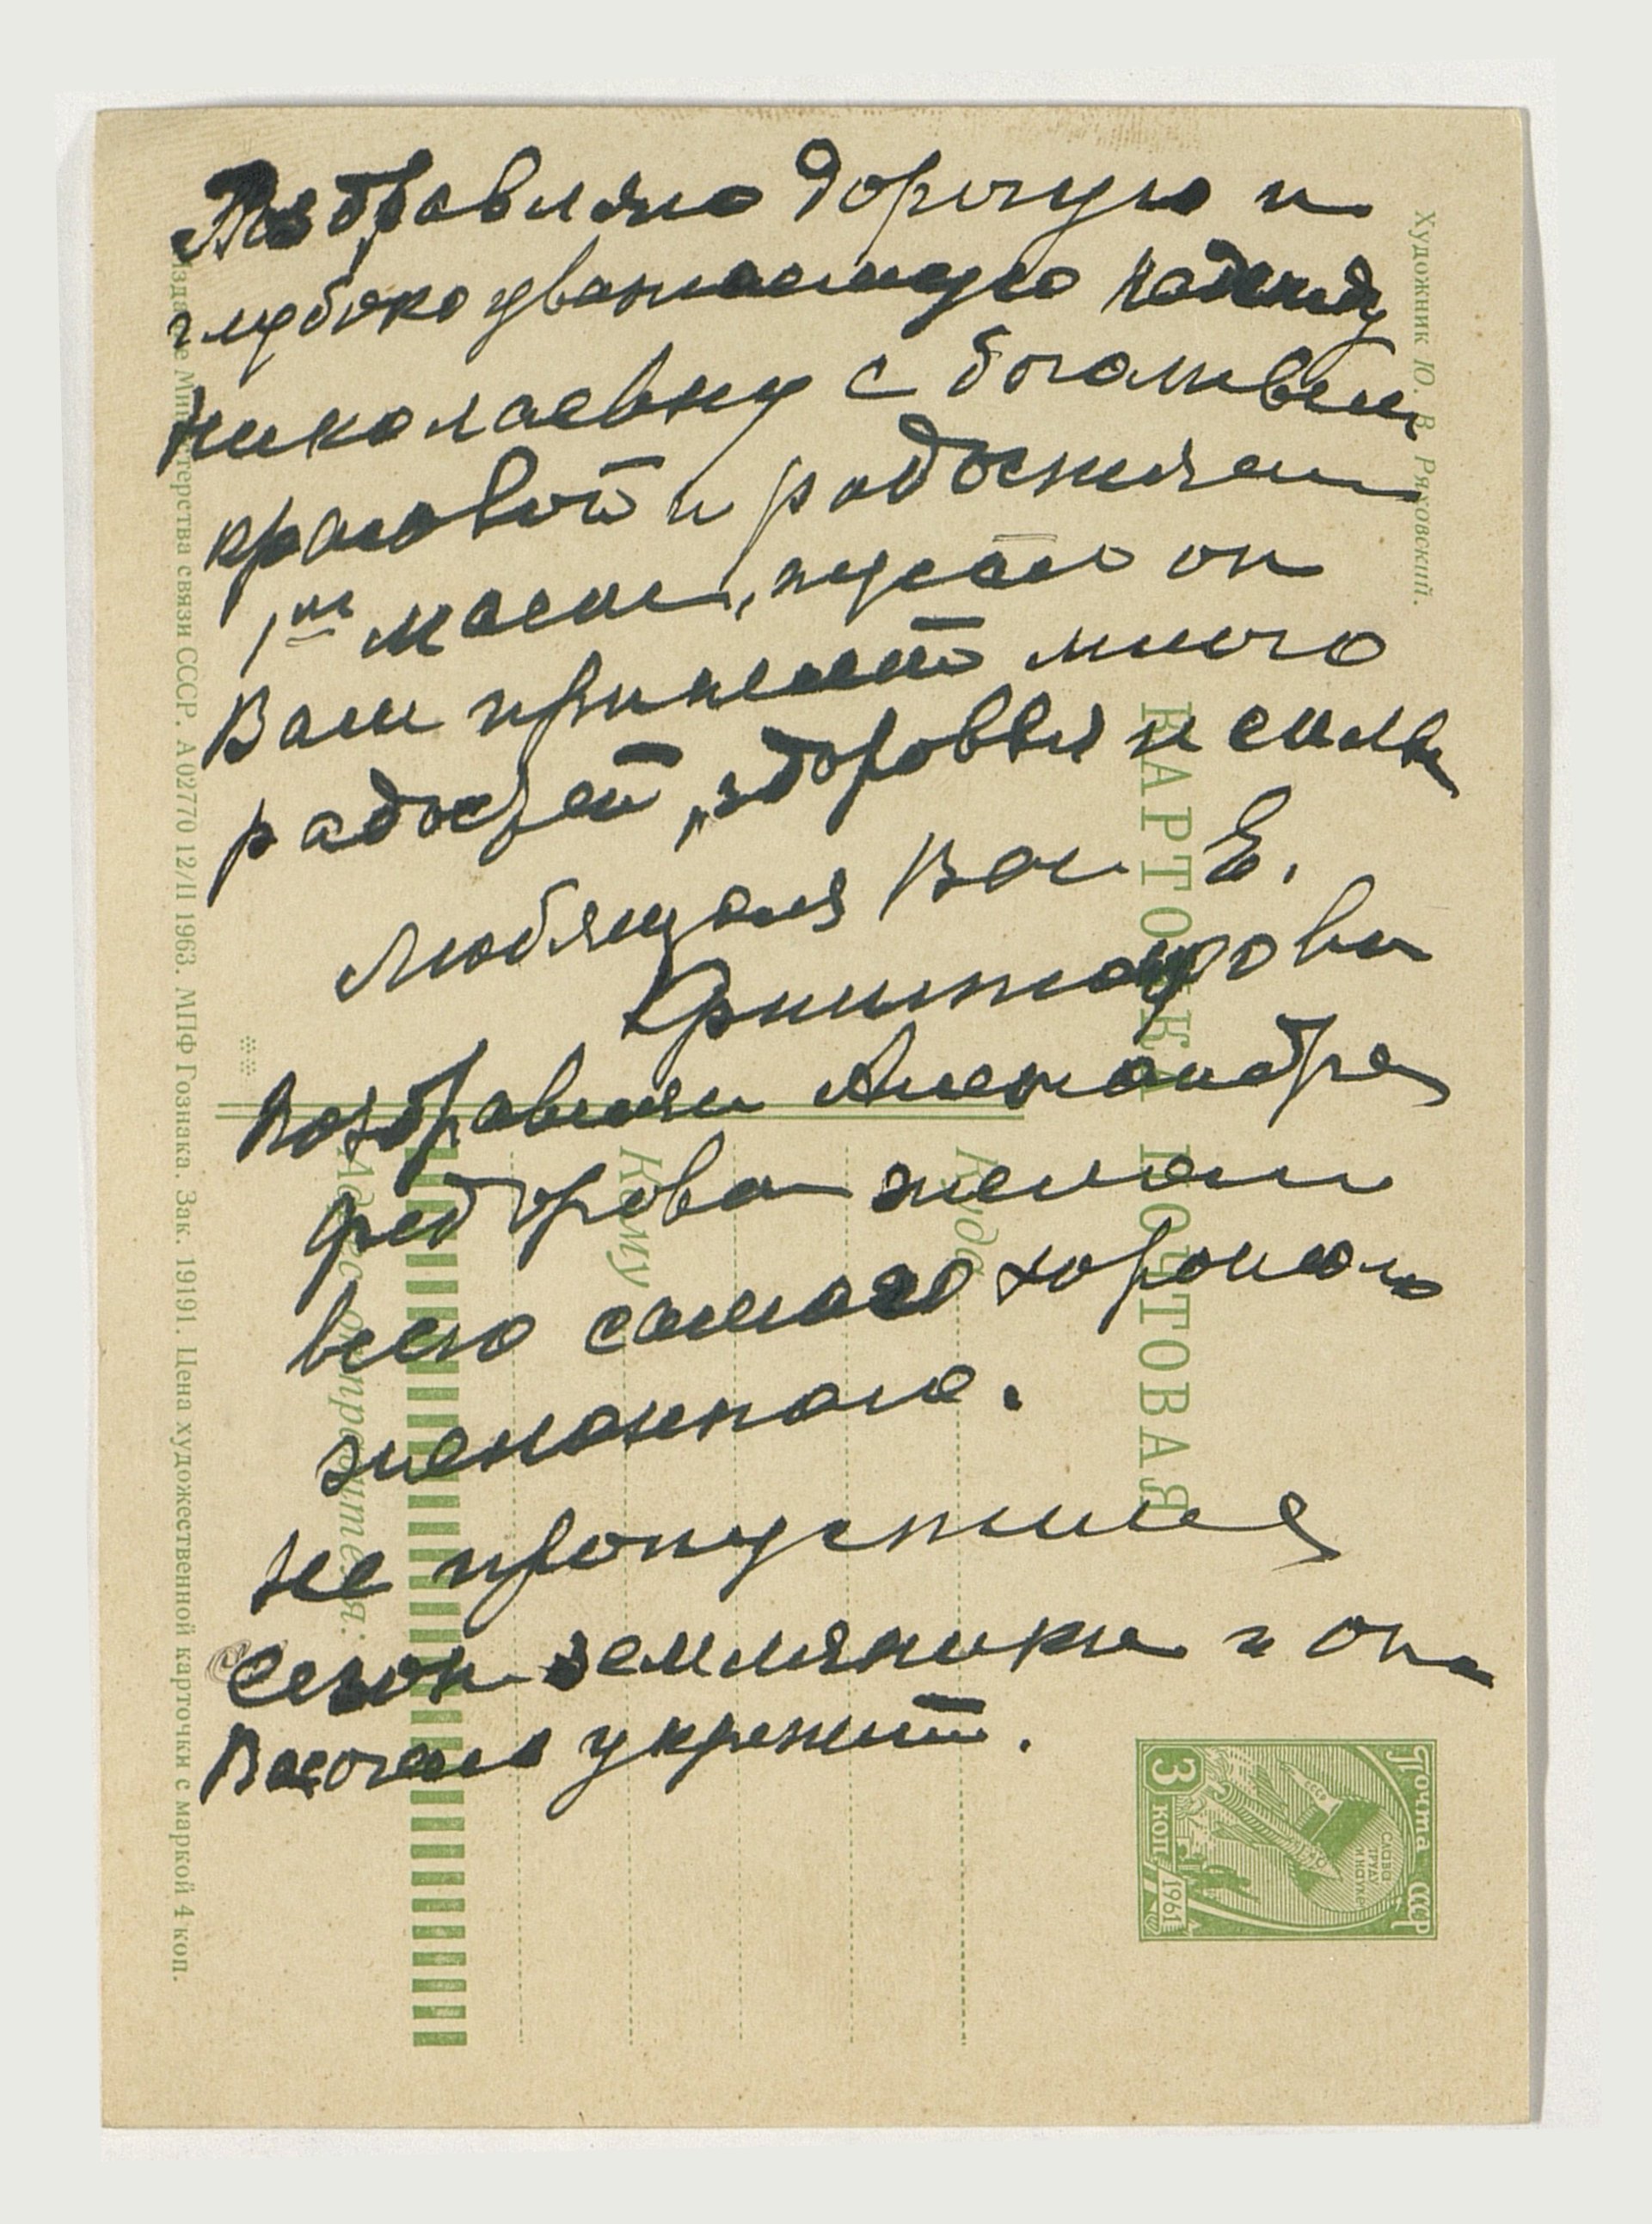 Поздравляю дорогую и
глубокоуважаемую Надежду
Николаевну с
красивой и радостным
1ым маем, пусть он
Вам принесет много
радостей, здоровья и силы
любящая Вас Е.

Поздравляем Александра
Федорова желаем
всего самого хорошого
желанного.
Не пропустите
сезон земляники и она
укрепит.
Художник Ю. В. Ряховский.
КАРТОЧКА ПОЧТОВАЯ
Куда
Кому
Адрес отправителя:
Издание Министерства связи СССР. А 02770 12/II 1963. МПФ Гознака. Зак. 19191. Цена художественной карточки с маркой 4 коп.
Почта СССР
СЛАВА
ТРУДУ
И НАУКЕ
СССР
3 КОП
1961